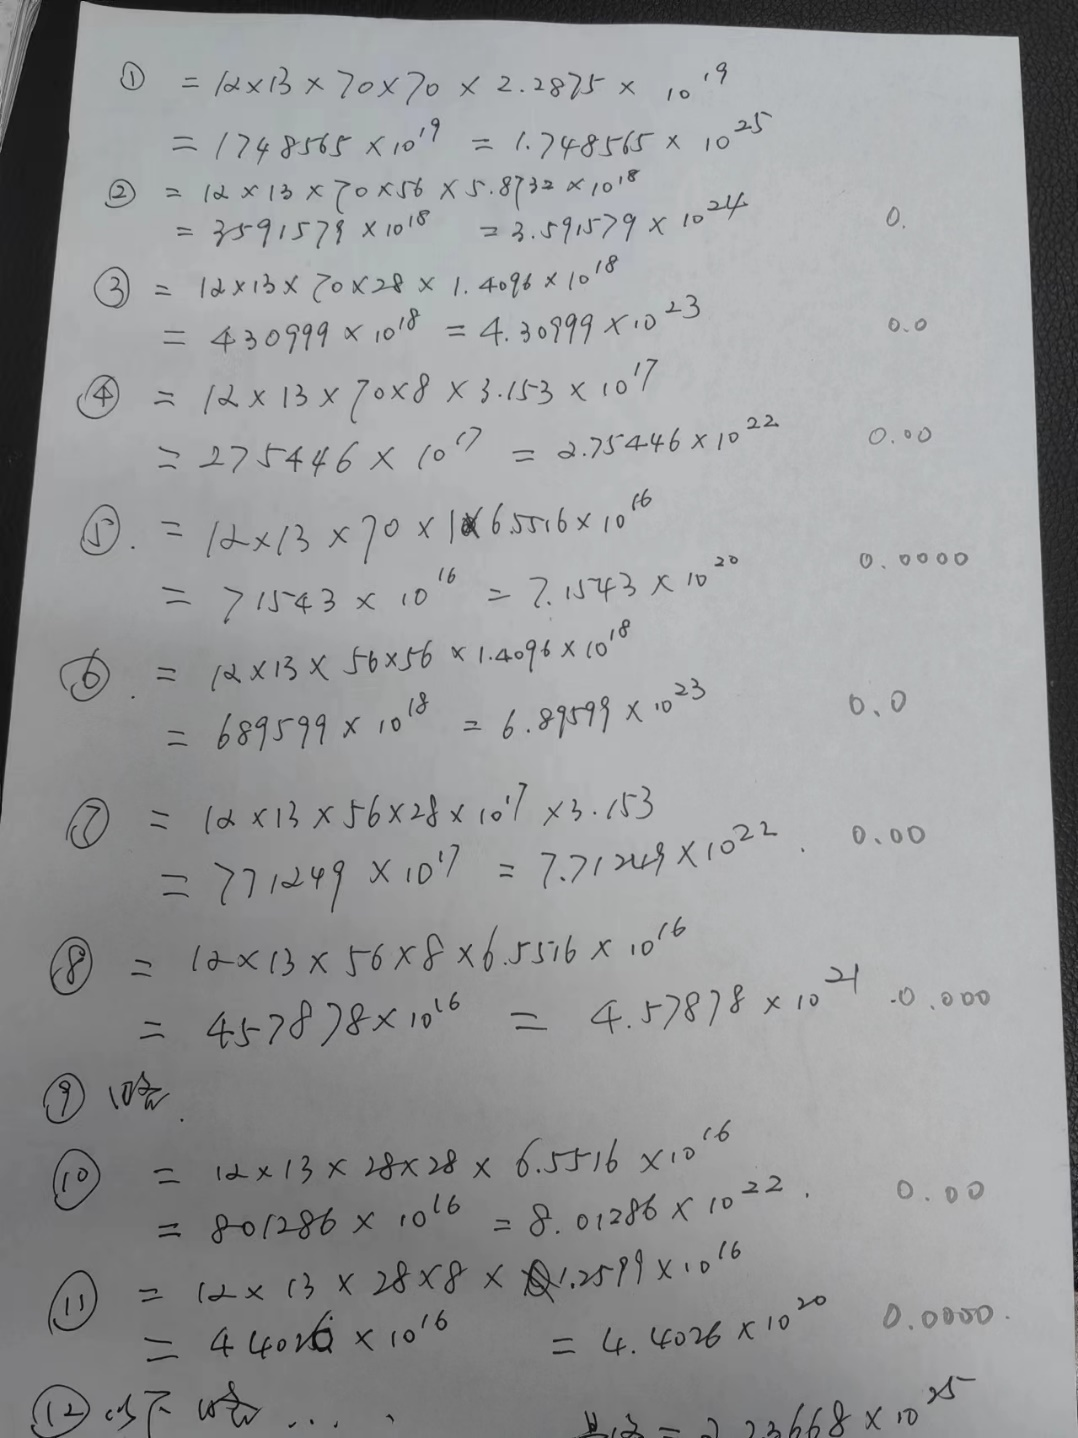 ① = 12×13×70×70×2.2875×10¹⁹
= 1748565×10¹⁹ = 1.748565×10²⁵
② = 12×13×70×56×5.8732×10¹⁸
= 3591579×10¹⁸ = 3.591579×10²⁴ 0.
③ = 12×13×70×28×1.4096×10¹⁸
= 430999×10¹⁸ = 4.30999×10²³ 0.0
④ = 12×13×70×8×3.153×10¹⁷
= 275446×10¹⁷ = 2.75446×10²² 0.00
⑤. = 12×13×70×1×6.5516×10¹⁶
= 71543×10¹⁶ = 7.1543×10²⁰ 0.0000
⑥. = 12×13×56×56×1.4096×10¹⁸
= 689599×10¹⁸ = 6.89599×10²³ 0.0
⑦ = 12×13×56×28×10¹⁷×3.153
= 771249×10¹⁷ = 7.71249×10²². 0.00
⑧ = 12×13×56×8×6.5516×10¹⁶
= 457878×10¹⁶ = 4.57878×10²¹ 0.000
⑨ 略.
⑩ = 12×13×28×28×6.5516×10¹⁶
= 801286×10¹⁶ = 8.01286×10²². 0.00
⑪ = 12×13×28×8×1.2599×10¹⁶
= 44026×10¹⁶ = 4.4026×10²⁰ 0.0000.
⑫ 以下略....
= 2.23668×10²⁵